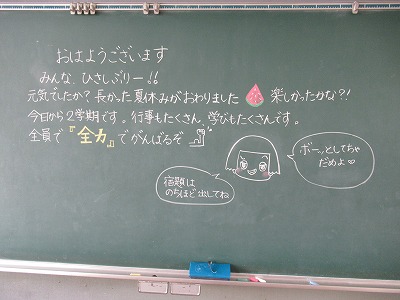 おはようございます
みんな、ひさしぶりー!!
元気でしたか?長かった夏休みがおわりました 楽しかったかな?!
今日から2学期です。行事もたくさん。学びもたくさんです。
全員で『全力』でがんばるぞ
ボーッとしてちゃ
だめよ♡
宿題は
のちほど出してね